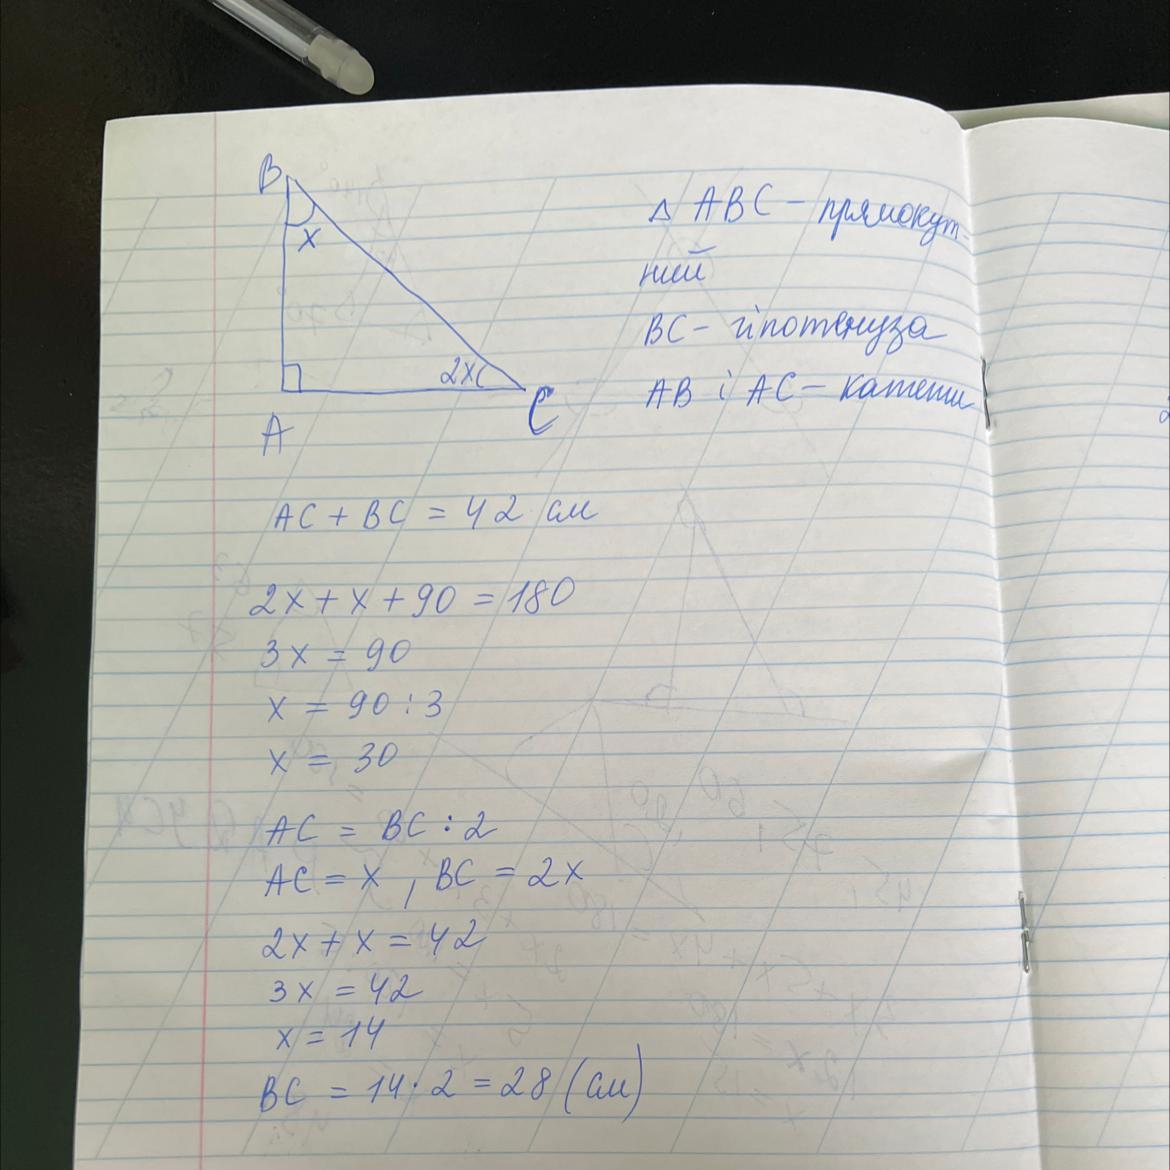 B
x
2x
A
C
△ ABC - прямокут-
ний
BC - гіпотенуза
AB і AC - катети
AC + BC = 42 см
2x + x + 90 = 180
3x = 90
x = 90 : 3
x = 30
AC = BC : 2
AC = x , BC = 2x
2x + x = 42
3x = 42
x = 14
BC = 14 · 2 = 28 (см)